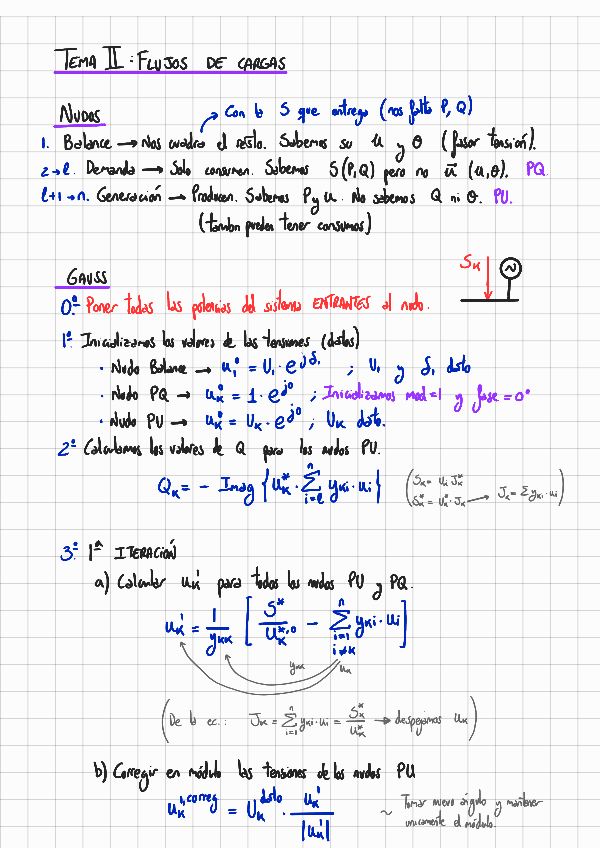 TEMA II: FLUJOS DE CARGAS
NUDOS
Con la S que entrega (nos falta P, Q)
1. Balance → Nos cuadra el resto. Sabemos su u y θ (fasor tensión).
2→l. Demanda → Solo consumen. Sabemos S(P,Q) pero no ū (u,θ). PQ
l+1→n. Generación → Producen. Sabemos P y u. No sabemos Q ni θ. PU.
(tambn pueden tener consumos)
GAUSS
Sₖ
0º. Poner todas las potencias del sistema ENTRANTES al nudo.
1º. Inicializamos los valores de las tensiones (datos)
· Nudo Balance → u₁⁰ = U₁ · e^jδ₁ ; U₁ y δ₁ dato
· Nudo PQ → uₖ⁰ = 1 · e^j0 ; Inicializamos mod=1 y fase = 0°
· Nudo PU → uₖ⁰ = Uₖ · e^j0 ; Uₖ dato.
2º. Calculamos los valores de Q para los nudos PU.
Qₖ = - Imag { uₖ* · Σ_{i=l}^{n} yₖᵢ · uᵢ }
( Sₖ = Uₖ Jₖ*
Sₖ* = Uₖ* · Jₖ → Jₖ = Σ yₖᵢ · uᵢ )
3º. 1ª ITERACIÓN
a) Calcular uₖ¹ para todos los nudos PU y PQ.
uₖ¹ = 1/yₖₖ [ S*/Uₖ*,⁰ - Σ_{i=1, i≠k}^{n} yₖᵢ · uᵢ ]
yₖₖ uₖ
( De la ec.: Jₖ = Σ_{i=1}^{n} yₖᵢ · uᵢ = Sₖ*/Uₖ* → despejamos uₖ )
b) Corregir en módulo las tensiones de los nudos PU
uₖ^{1,correg} = Uₖ^{dato} · uₖ¹/|uₖ¹|
~ Tomar nuevo ángulo y mantener
unicamente el módulo.